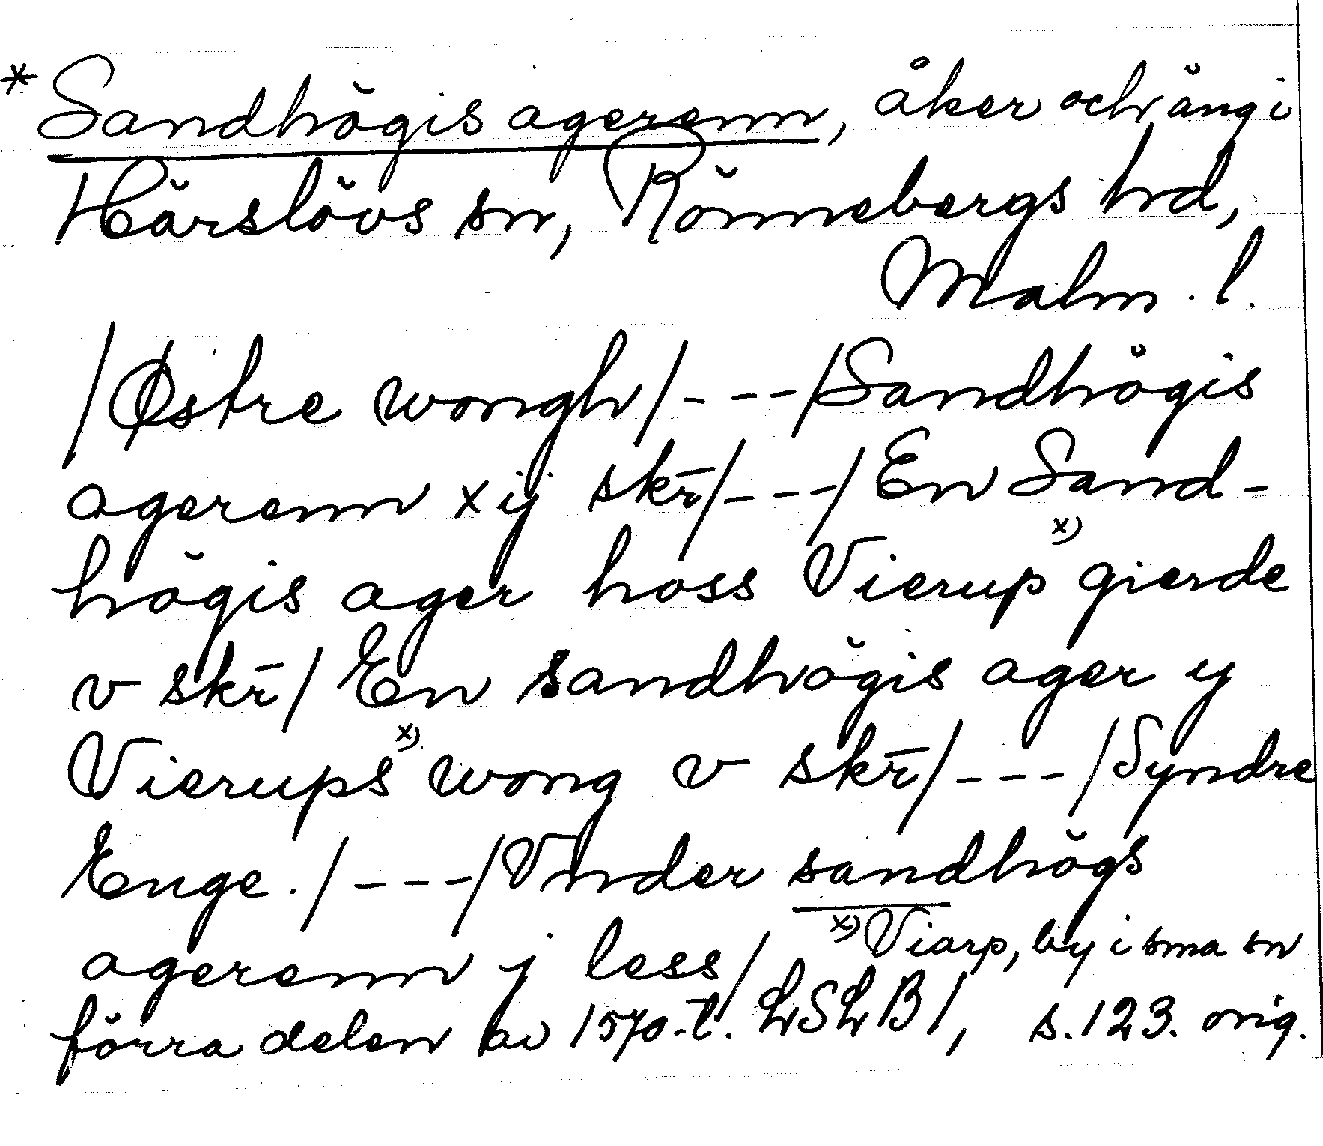 * Sandhögis agerenn, åker och äng i
Härslövs sn, Rönnebergs hd,
Malm. l.
/Østre wongh/---/Sandhögis
agerenn xij skr̄/---/En Sand-
högis ager hoss Vierup x) gierde
v skr̄/ En sandhögis ager y
Vierups x) wong v skr̄/---/Syndre
Enge./---/Vnder sandhögs
agerenn j less/ x) Viarp, by i sma sn
förra delen av 1570-t. LSLB 1, s. 123. orig.